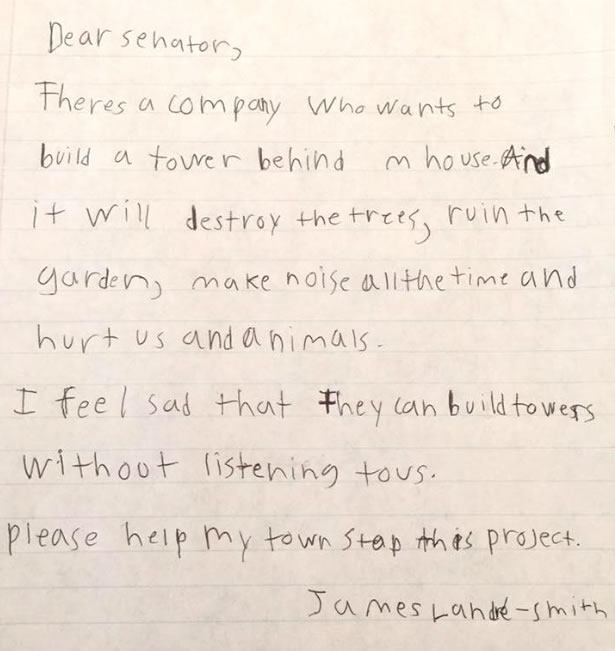 Dear senator,
Theres a company who wants to
build a tower behind m house. And
it will destroy the trees, ruin the
garden, make noise all the time and
hurt us and animals.
I feel sad that they can build towers
without listening to us.
please help my town stop this project.
James Landré-smith